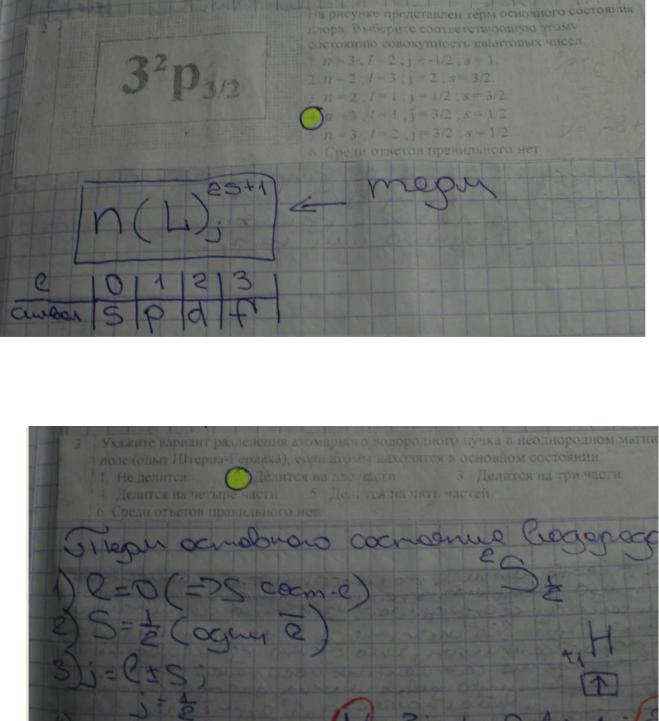 2
На рисунке представлен терм основного состояния
хлора. Выберите соответствующую этому
состоянию совокупность квантовых чисел.
3²p₃/₂
n = 3 ; l = 2 ; j = -1/2 ; s = 1.
2. n = 2 ; l = 3 ; j = 2 ; s = 3/2.
n = 2 ; l = 1 ; j = 1/2 ; s = 3/2
n = 3 ; l = 1 ; j = 3/2 ; s = 1/2
n = 3 ; l = 2 ; j = 3/2 ; s = 1/2
6. Среди ответов правильного нет
n(L)j 2S+1 ← терм
e 0 1 2 3
символ S p d f
3 Укажите вариант разделения атомарного водородного пучка в неоднородном магни
поле (опыт Штерна-Герлаха), если атомы находятся в основном состоянии.
1. Не делится. Делится на две части. 3. Делится на три части.
4. Делится на четыре части. 5. Делится на пять частей.
6. Среди ответов правильного нет
Терм основного состояние водорода
1) l=0 (=>S сост-е) ²S½
2) S=½ (один e̅)
3) j=l±S;
+1H
j=½
↑